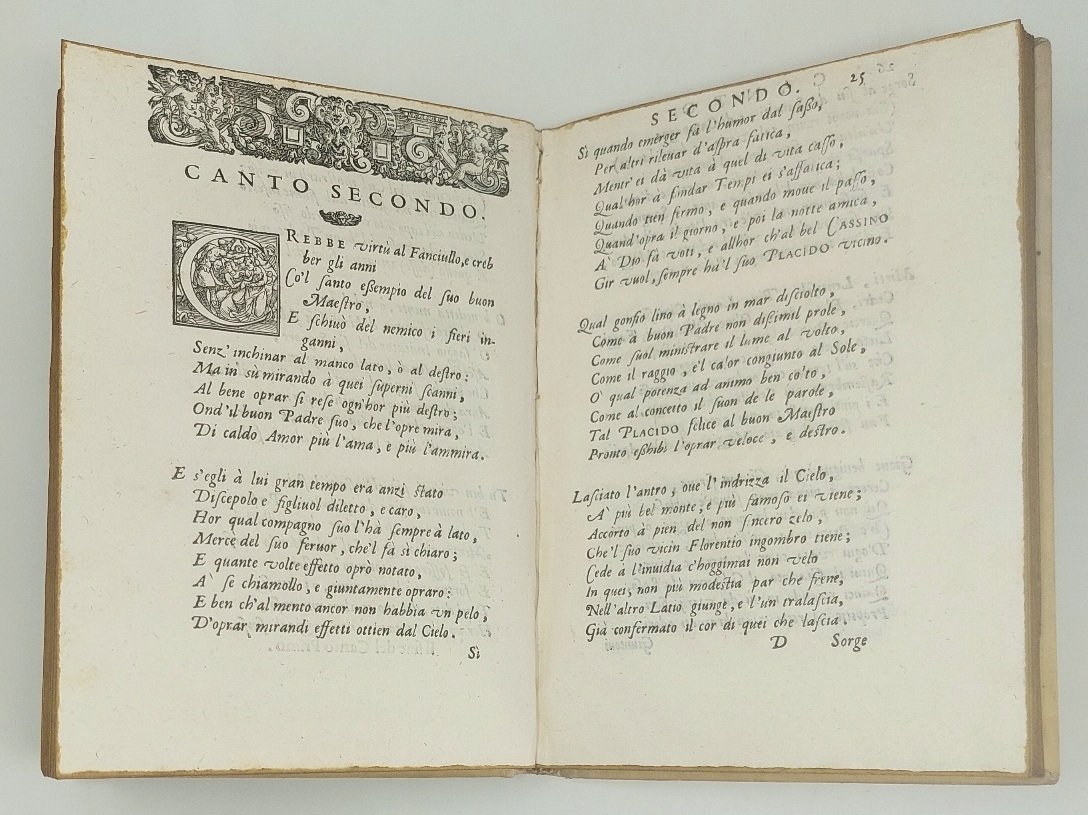 CANTO SECONDO.
CREBBE virtù al Fanciullo, e creb
ber gli anni
Co'l santo essempio del suo buon
Maestro,
E schiuò del nemico i fieri in-
ganni,
Senz' inchinar al manco lato, ò al destro:
Ma in sù mirando à quei superni scanni,
Al bene oprar si rese ogn'hor più destro;
Ond'il buon Padre suo, che l'opre mira,
Di caldo Amor più l'ama, e più l'ammira.
E s'egli à lui gran tempo era anzi stato
Discepolo e figliuol diletto, e caro,
Hor qual compagno suo l'hà sempre à lato,
Mercè del suo feruor, che'l fà sì chiaro;
E quante volte effetto oprò notato,
A' se chiamollo, e giuntamente opraro:
E ben ch'al mento ancor non habbia vn pelo,
D'oprar mirandi effetti ottien dal Cielo.
Sì
SECONDO. 25
Sì quando emerger fà l'humor dal sasso,
Per altri rileuar d'aspra fatica,
Mentr' ei dà vita à quel di vita casso,
Qual'hor à fondar Tempi ei s'affatica;
Quando tien fermo, e quando moue il passo,
Quand'opra il giorno, e poi la notte amica,
A' Dio fà voti, e allhor ch'al bel CASSINO
Gir vuol, sempre hà'l suo PLACIDO vicino.
Qual gonfio lino à legno in mar disciolto,
Come à buon Padre non dissimil prole,
Come suol ministrare il lume al volto,
Come il raggio, e'l calor congiunto al Sole,
O' qual potenza ad animo ben colto,
Come al concetto il suon de le parole,
Tal PLACIDO felice al buon Maestro
Pronto essihibì l'oprar veloce, e destro.
Lasciato l'antro, oue l'indrizza il Cielo,
A' più bel monte, e più famoso ei viene;
Accorto à pien del non sincero zelo,
Che'l suo vicin Florentio ingombro tiene;
Cede à l'inuidia c'hoggimai non velo
In quei, non più modestia par che frene,
Nell'altro Latio giunge, e l'un tralascia,
Già confermato il cor di quei che lascia.
D Sorge